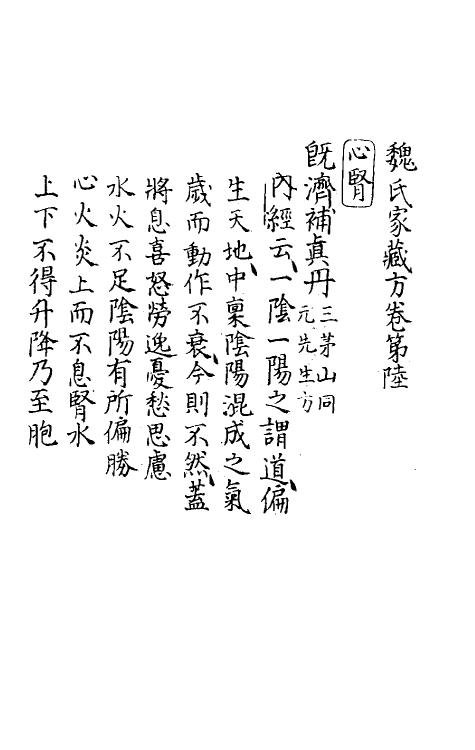 魏氏家藏方卷第陸
心腎
既濟補真丹三茅山同元先生方
內經云一陰一陽之謂道偏
生天地中稟陰陽混成之氣
歲而動作不衰今則不然蓋
將息喜怒勞逸憂愁思慮
水火不足陰陽有所偏勝
心火炎上而不息腎水
上下不得升降乃至胞